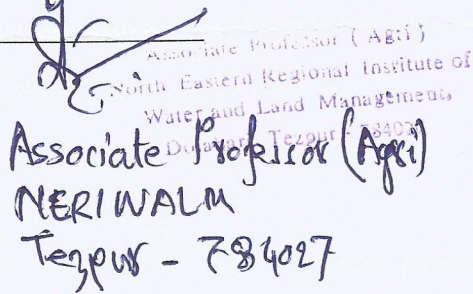 Associate Professor ( Agri )
North Eastern Regional Institute of
Water and Land Management,
Tezpur
Associate Professor (Agri)
NERIWALM
Tezpur - 784027